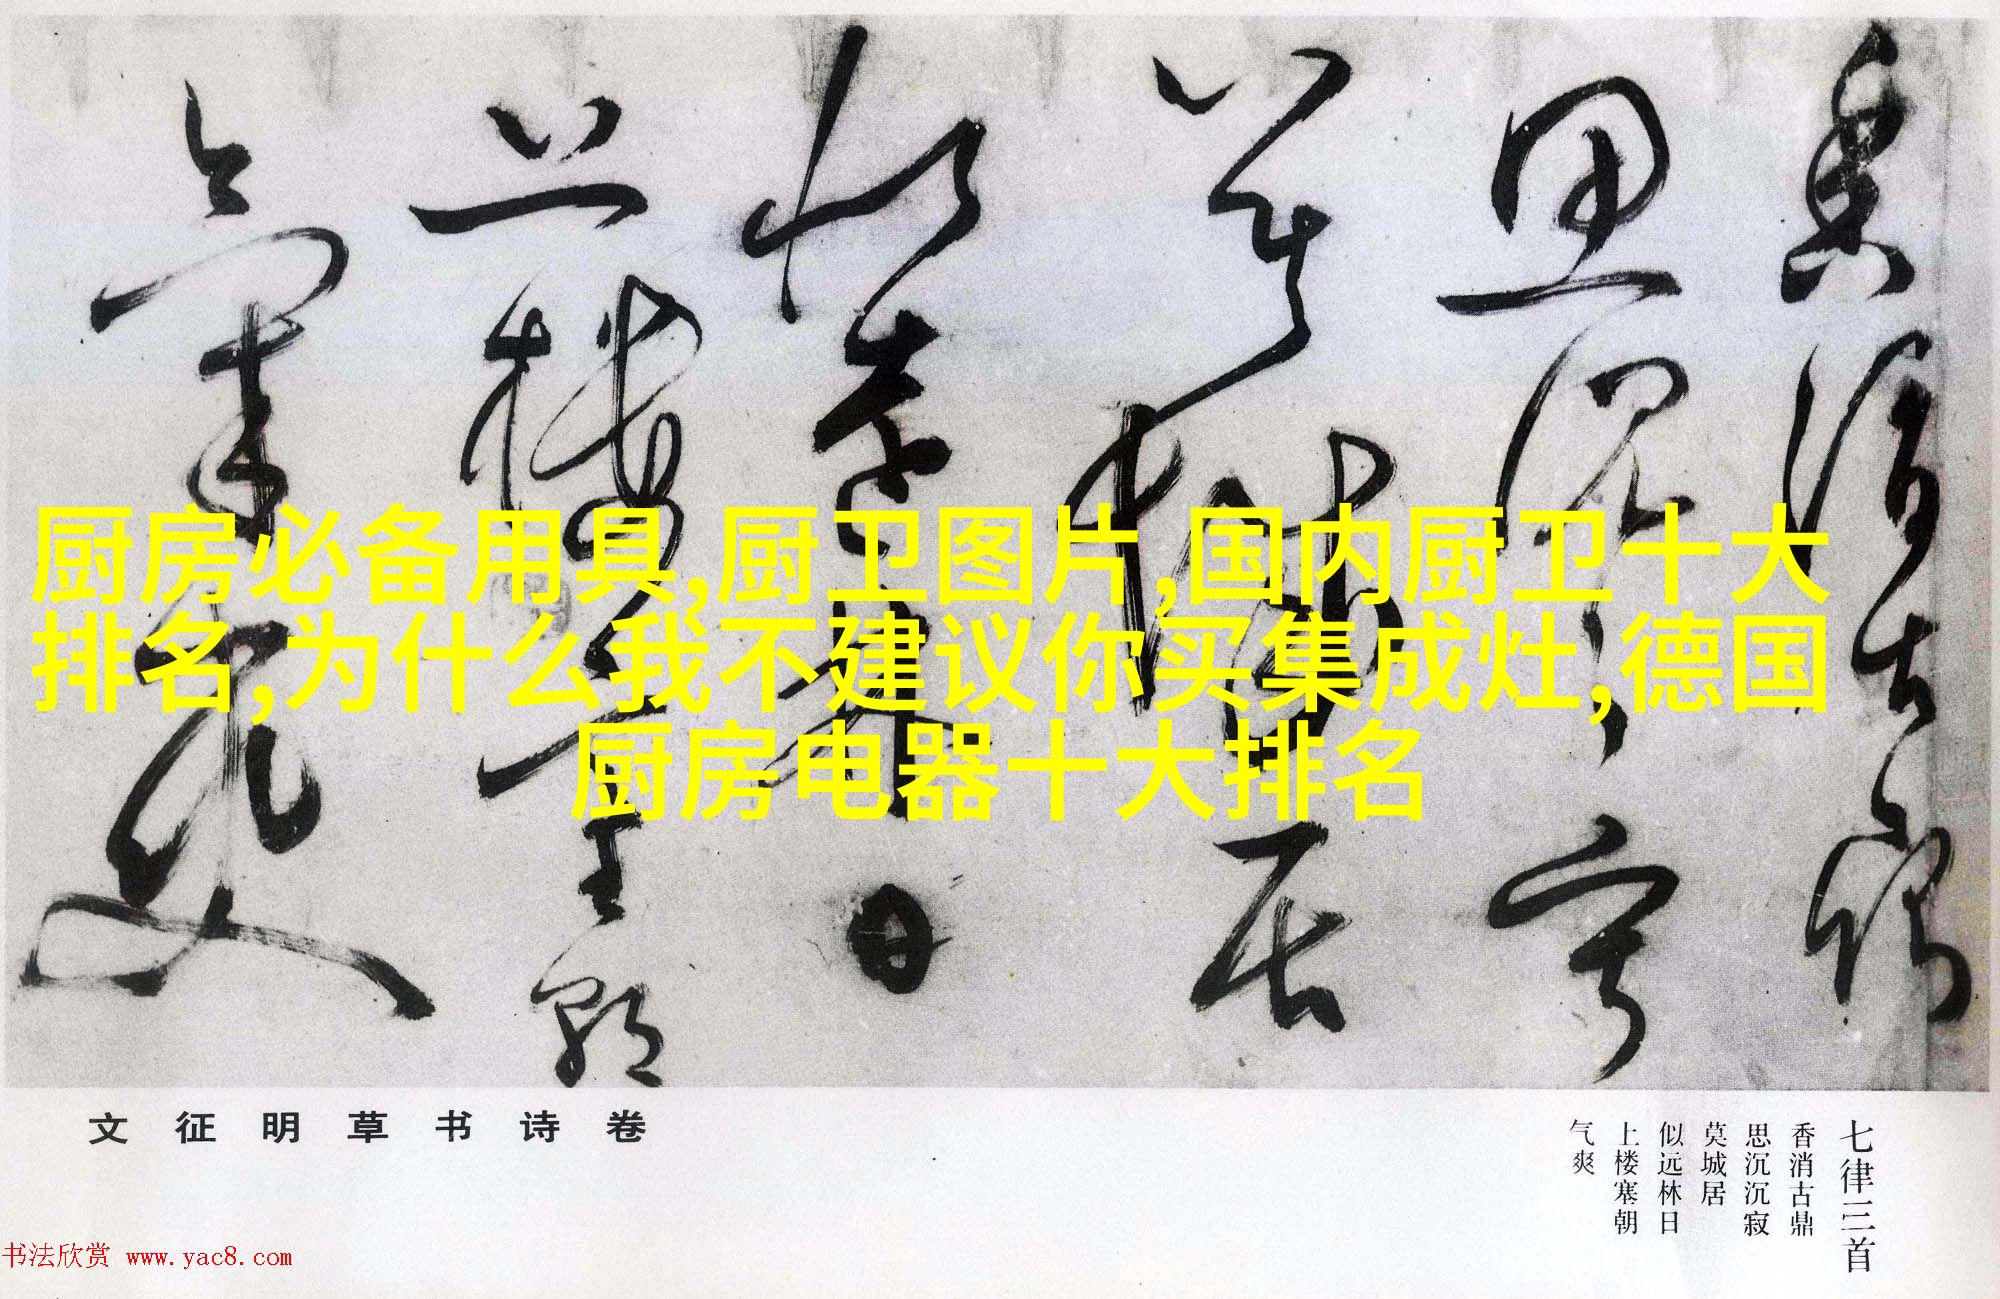 香消古鼎
思沉沉寂
莫城居
似远林日
上楼塞朝
气爽
厨房必备用具,厨卫图片,国内厨卫十大
排名,为什么我不建议你买集成灶,德国
厨房电器十大排名
文征明草书诗卷
七律三首
香消古鼎
思沉沉寂
莫城居
似远林日
上楼塞朝
气爽
书法欣赏 www.yac8.com